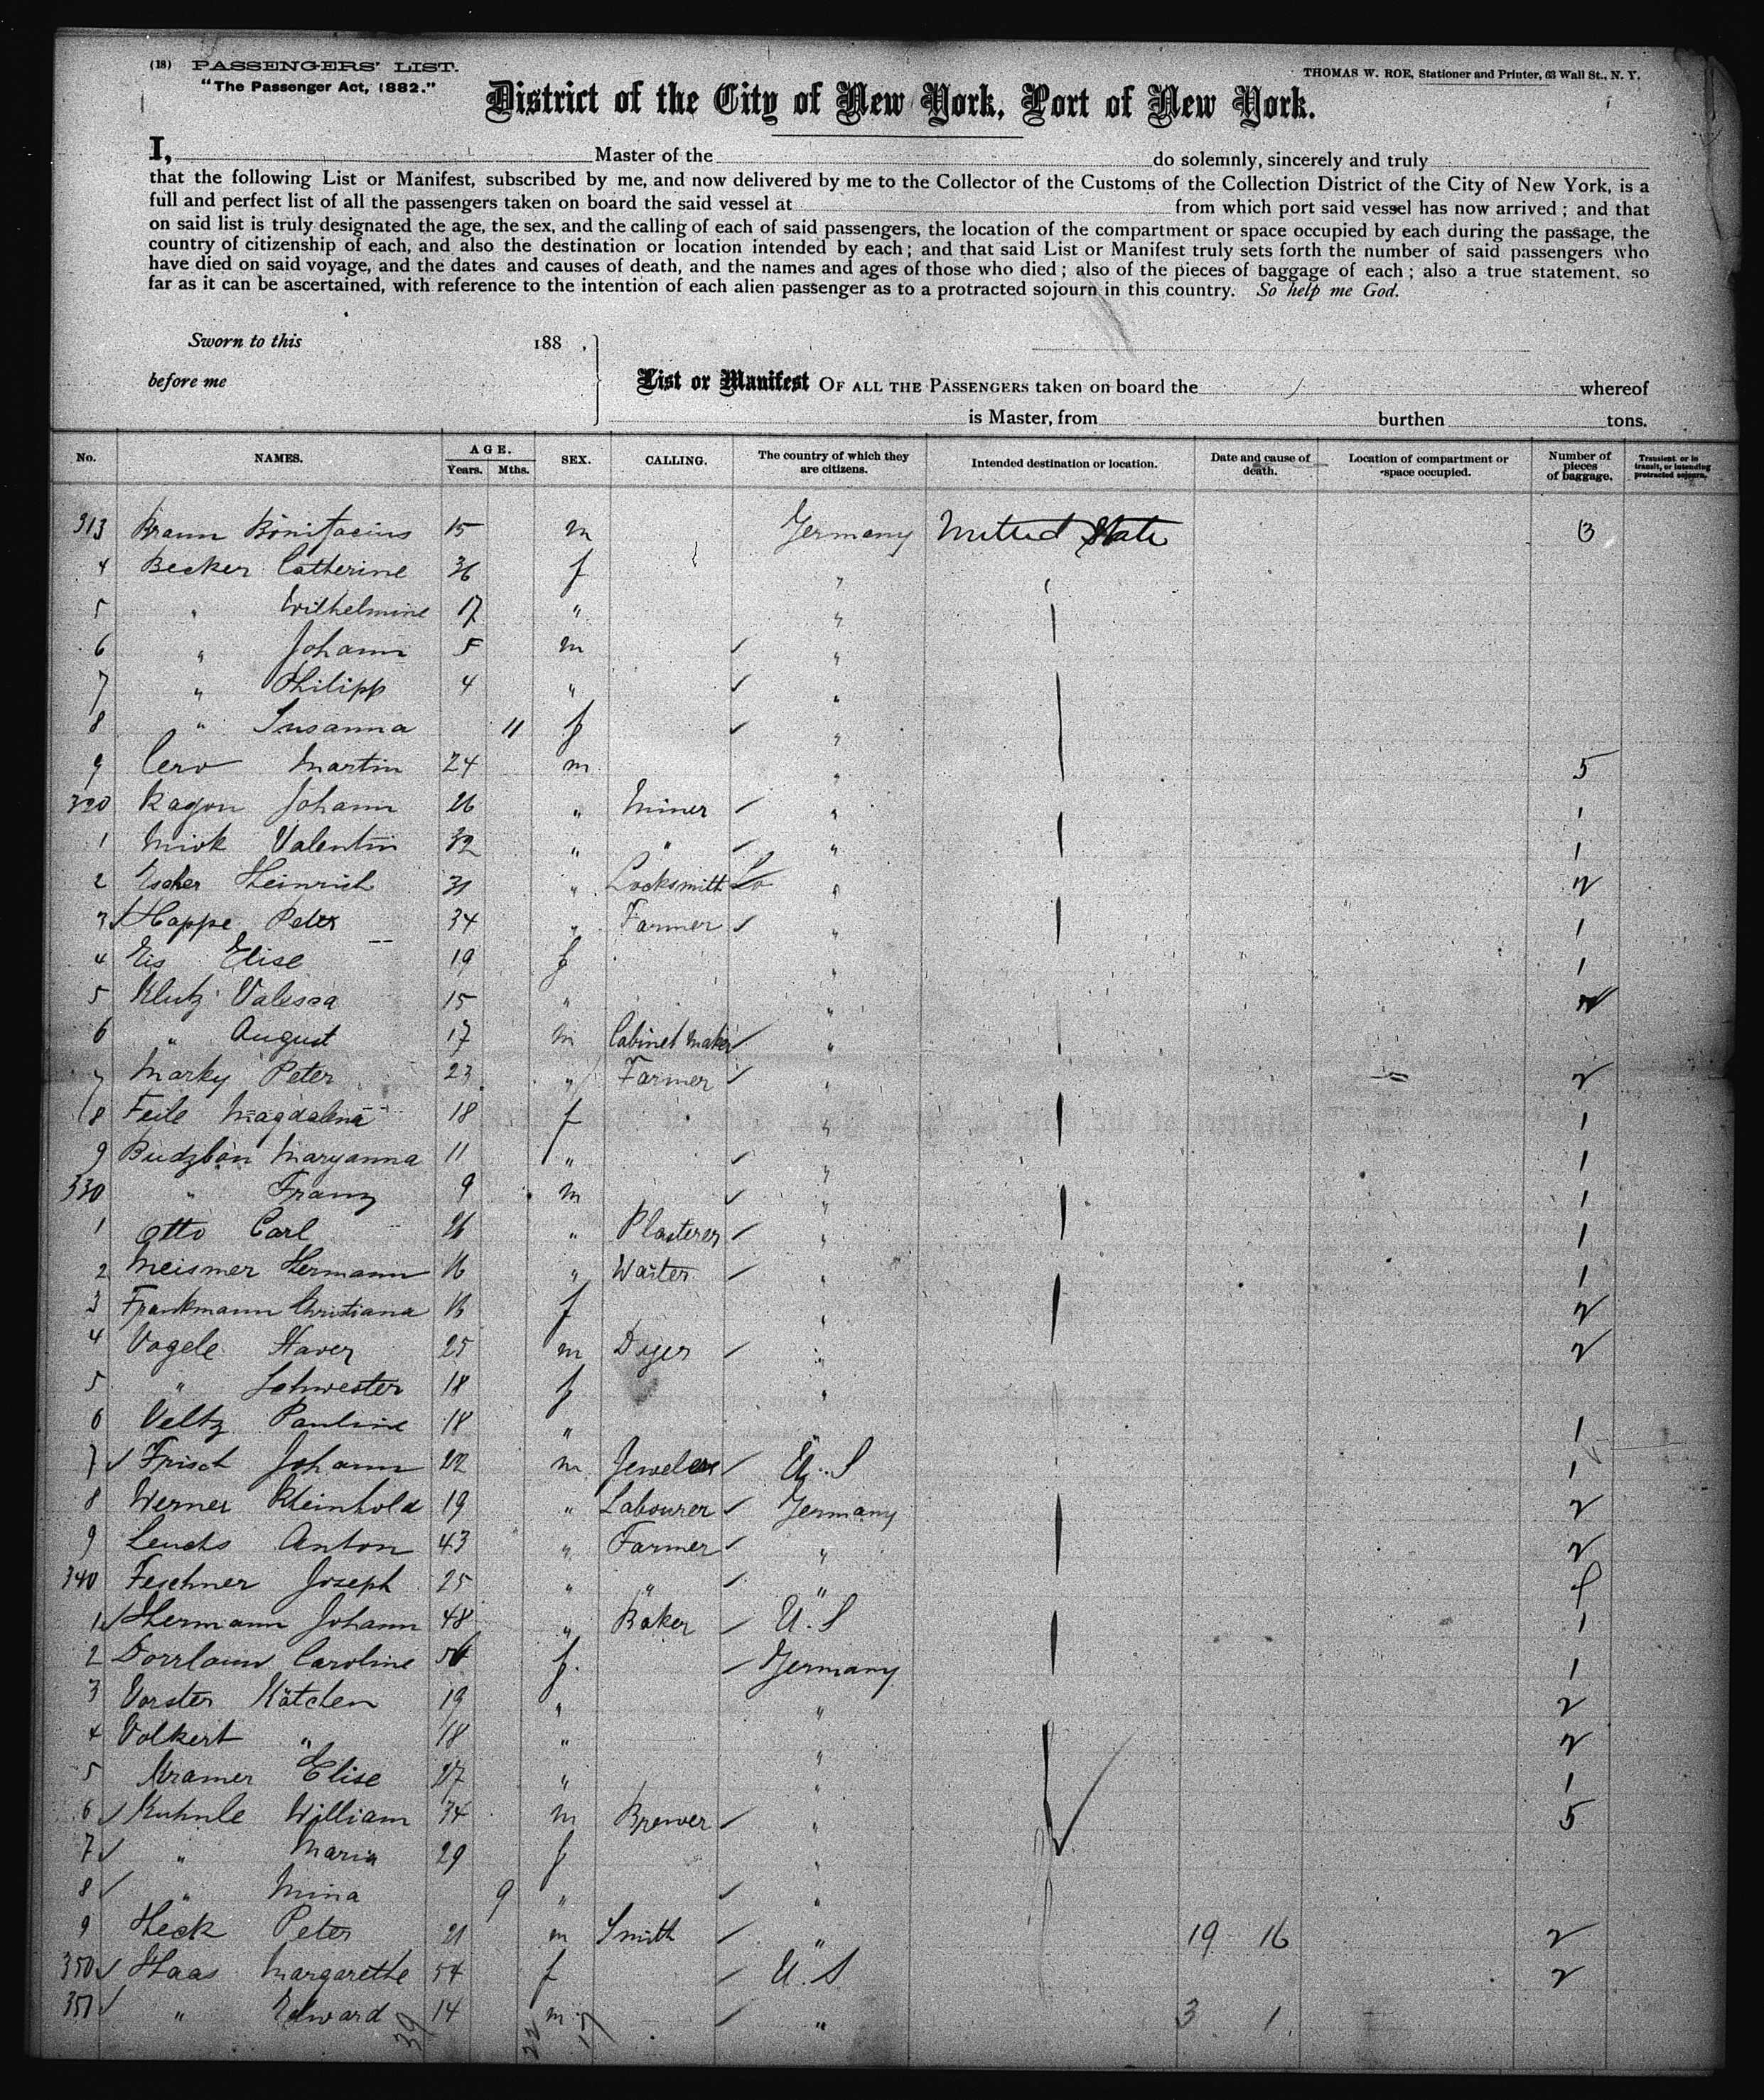 (18) PASSENGERS' LIST.
"The Passenger Act, 1882."
THOMAS W. ROE, Stationer and Printer, 63 Wall St., N. Y.
District of the City of New York, Port of New York.
I, Master of the do solemnly, sincerely and truly
that the following List or Manifest, subscribed by me, and now delivered by me to the Collector of the Customs of the Collection District of the City of New York, is a
full and perfect list of all the passengers taken on board the said vessel at from which port said vessel has now arrived ; and that
on said list is truly designated the age, the sex, and the calling of each of said passengers, the location of the compartment or space occupied by each during the passage, the
country of citizenship of each, and also the destination or location intended by each ; and that said List or Manifest truly sets forth the number of said passengers who
have died on said voyage, and the dates and causes of death, and the names and ages of those who died ; also of the pieces of baggage of each ; also a true statement, so
far as it can be ascertained, with reference to the intention of each alien passenger as to a protracted sojourn in this country. So help me God.
Sworn to this 188 ,
before me
List or Manifest OF ALL THE PASSENGERS taken on board the whereof
is Master, from burthen tons.
No. NAMES. AGE. Years. Mths. SEX. CALLING. The country of which they are citizens. Intended destination or location. Date and cause of death. Location of compartment or space occupied. Number of pieces of baggage. Transient or in transit, or intending protracted sojourn.
313 Braun Bonifacius 15 m Germany United State 3
4 Becker Catherine 36 f "
5 " Wilhelmine 17 " "
6 " Johann 5 m "
7 " Philipp 4 " "
8 " Susanna 11 f "
9 Martin 24 m " 5
320 Kagon Johann 26 " Miner " 1
1 Valentin 32 " " " 1
2 Escher Heinrich 31 " Locksmith " 2
3 Hoppe Peter 34 " Farmer " 1
4 Eis Elise 19 f " 1
5 Klutz Valesca 15 " "
6 " August 17 m Cabinet maker "
7 Marky Peter 23 " Farmer " 2
8 Feile Magdalena 18 f " 1
9 Budzbon Maryanna 11 " " 1
330 " Franz 9 m " 1
1 Otto Carl 26 " Plasterer " 1
2 Meismer Hermann 16 " Waiter " 1
3 Frankmann Christiana 16 f " 2
4 Vogele Xaver 25 m Dyer " 2
5 " Schwester 18 f "
6 Veltz Pauline 18 " 1
7 Frisch Johann 22 m Jeweler U.S 1
8 Werner Rheinhold 19 " Labourer Germany 2
9 Leuchs Anton 43 " Farmer " 2
340 Feschner Joseph 25 " " "
1 Hermann Johann 48 " Baker U.S 1
2 Caroline f. Germany 1
3 Vorster Kätchen 19 " " 2
4 Volkert " 18 " " 2
5 Kramer Elise 27 " " 1
6 Kuhnle William 34 m Brewer " 5
7 " Maria 29 f "
8 " Mina 9 " "
9 Heck Peter 21 m Smith " 19 16 2
350 Haas Margarethe 54 f U.S 2
351 " Edward 14 m " 3 1
39 22 17